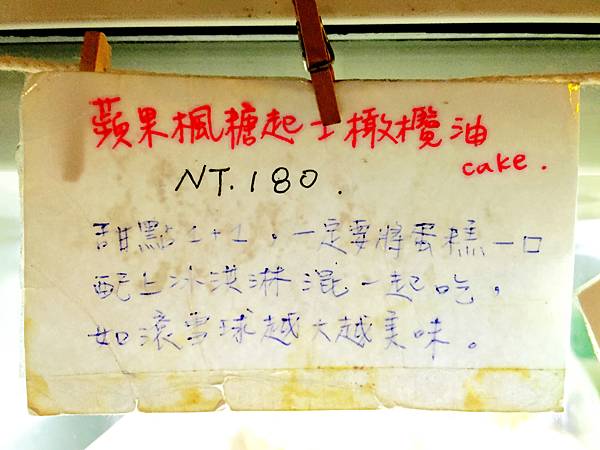 蘋果楓糖起士橄欖油
cake.
NT.180.
甜點1+1，一定要將蛋糕一口
配上冰淇淋混一起吃，
如滾雪球越大越美味。